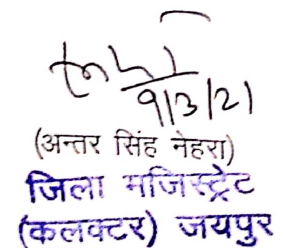 9/3/21
(अन्तर सिंह नेहरा)
जिला मजिस्ट्रेट
(कलक्टर) जयपुर